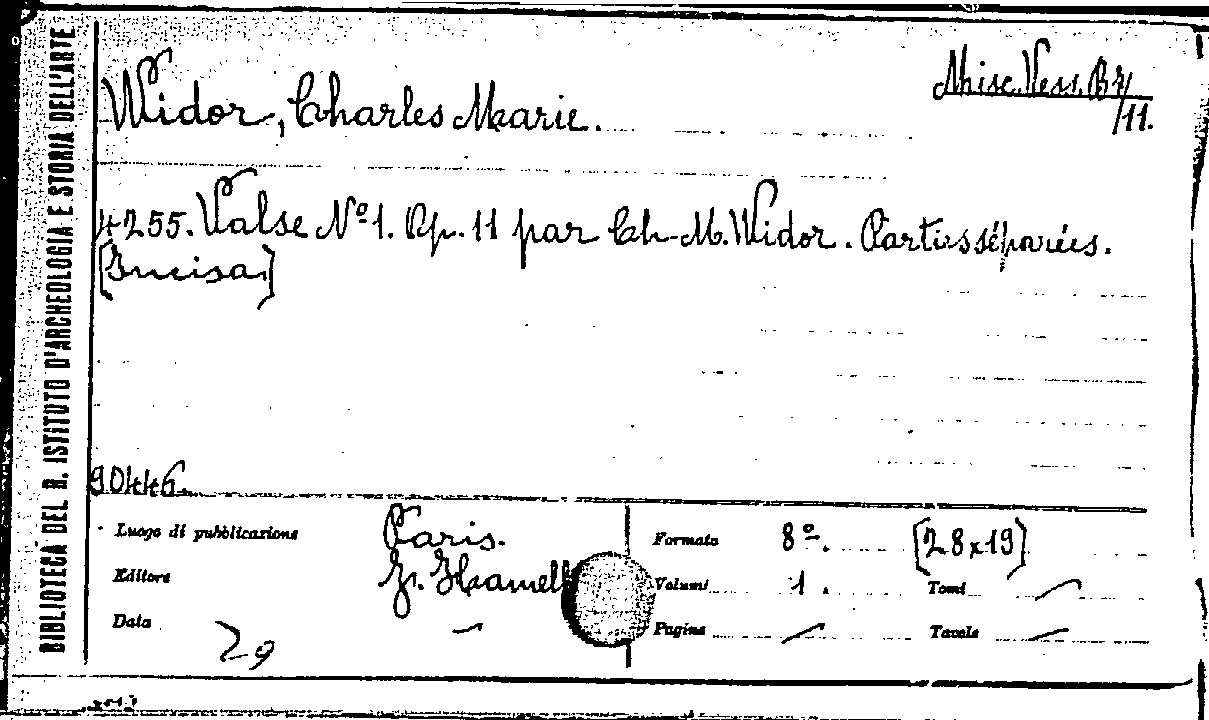 BIBLIOTECA DEL R. ISTITUTO D'ARCHEOLOGIA E STORIA DELL'ARTE
Misc. Vess. B
/11.
Widor, Charles Marie.
4255. Valse Nº 1. Op. 11 par Ch-M. Widor. Parties séparées.
[Incisa]
90446.
Luogo di pubblicazione Paris.
Editore J. Hamelle
Data —
29
Formato 8º. [28x19]
Volumi 1. Tomi /
Pagine / Tavole /